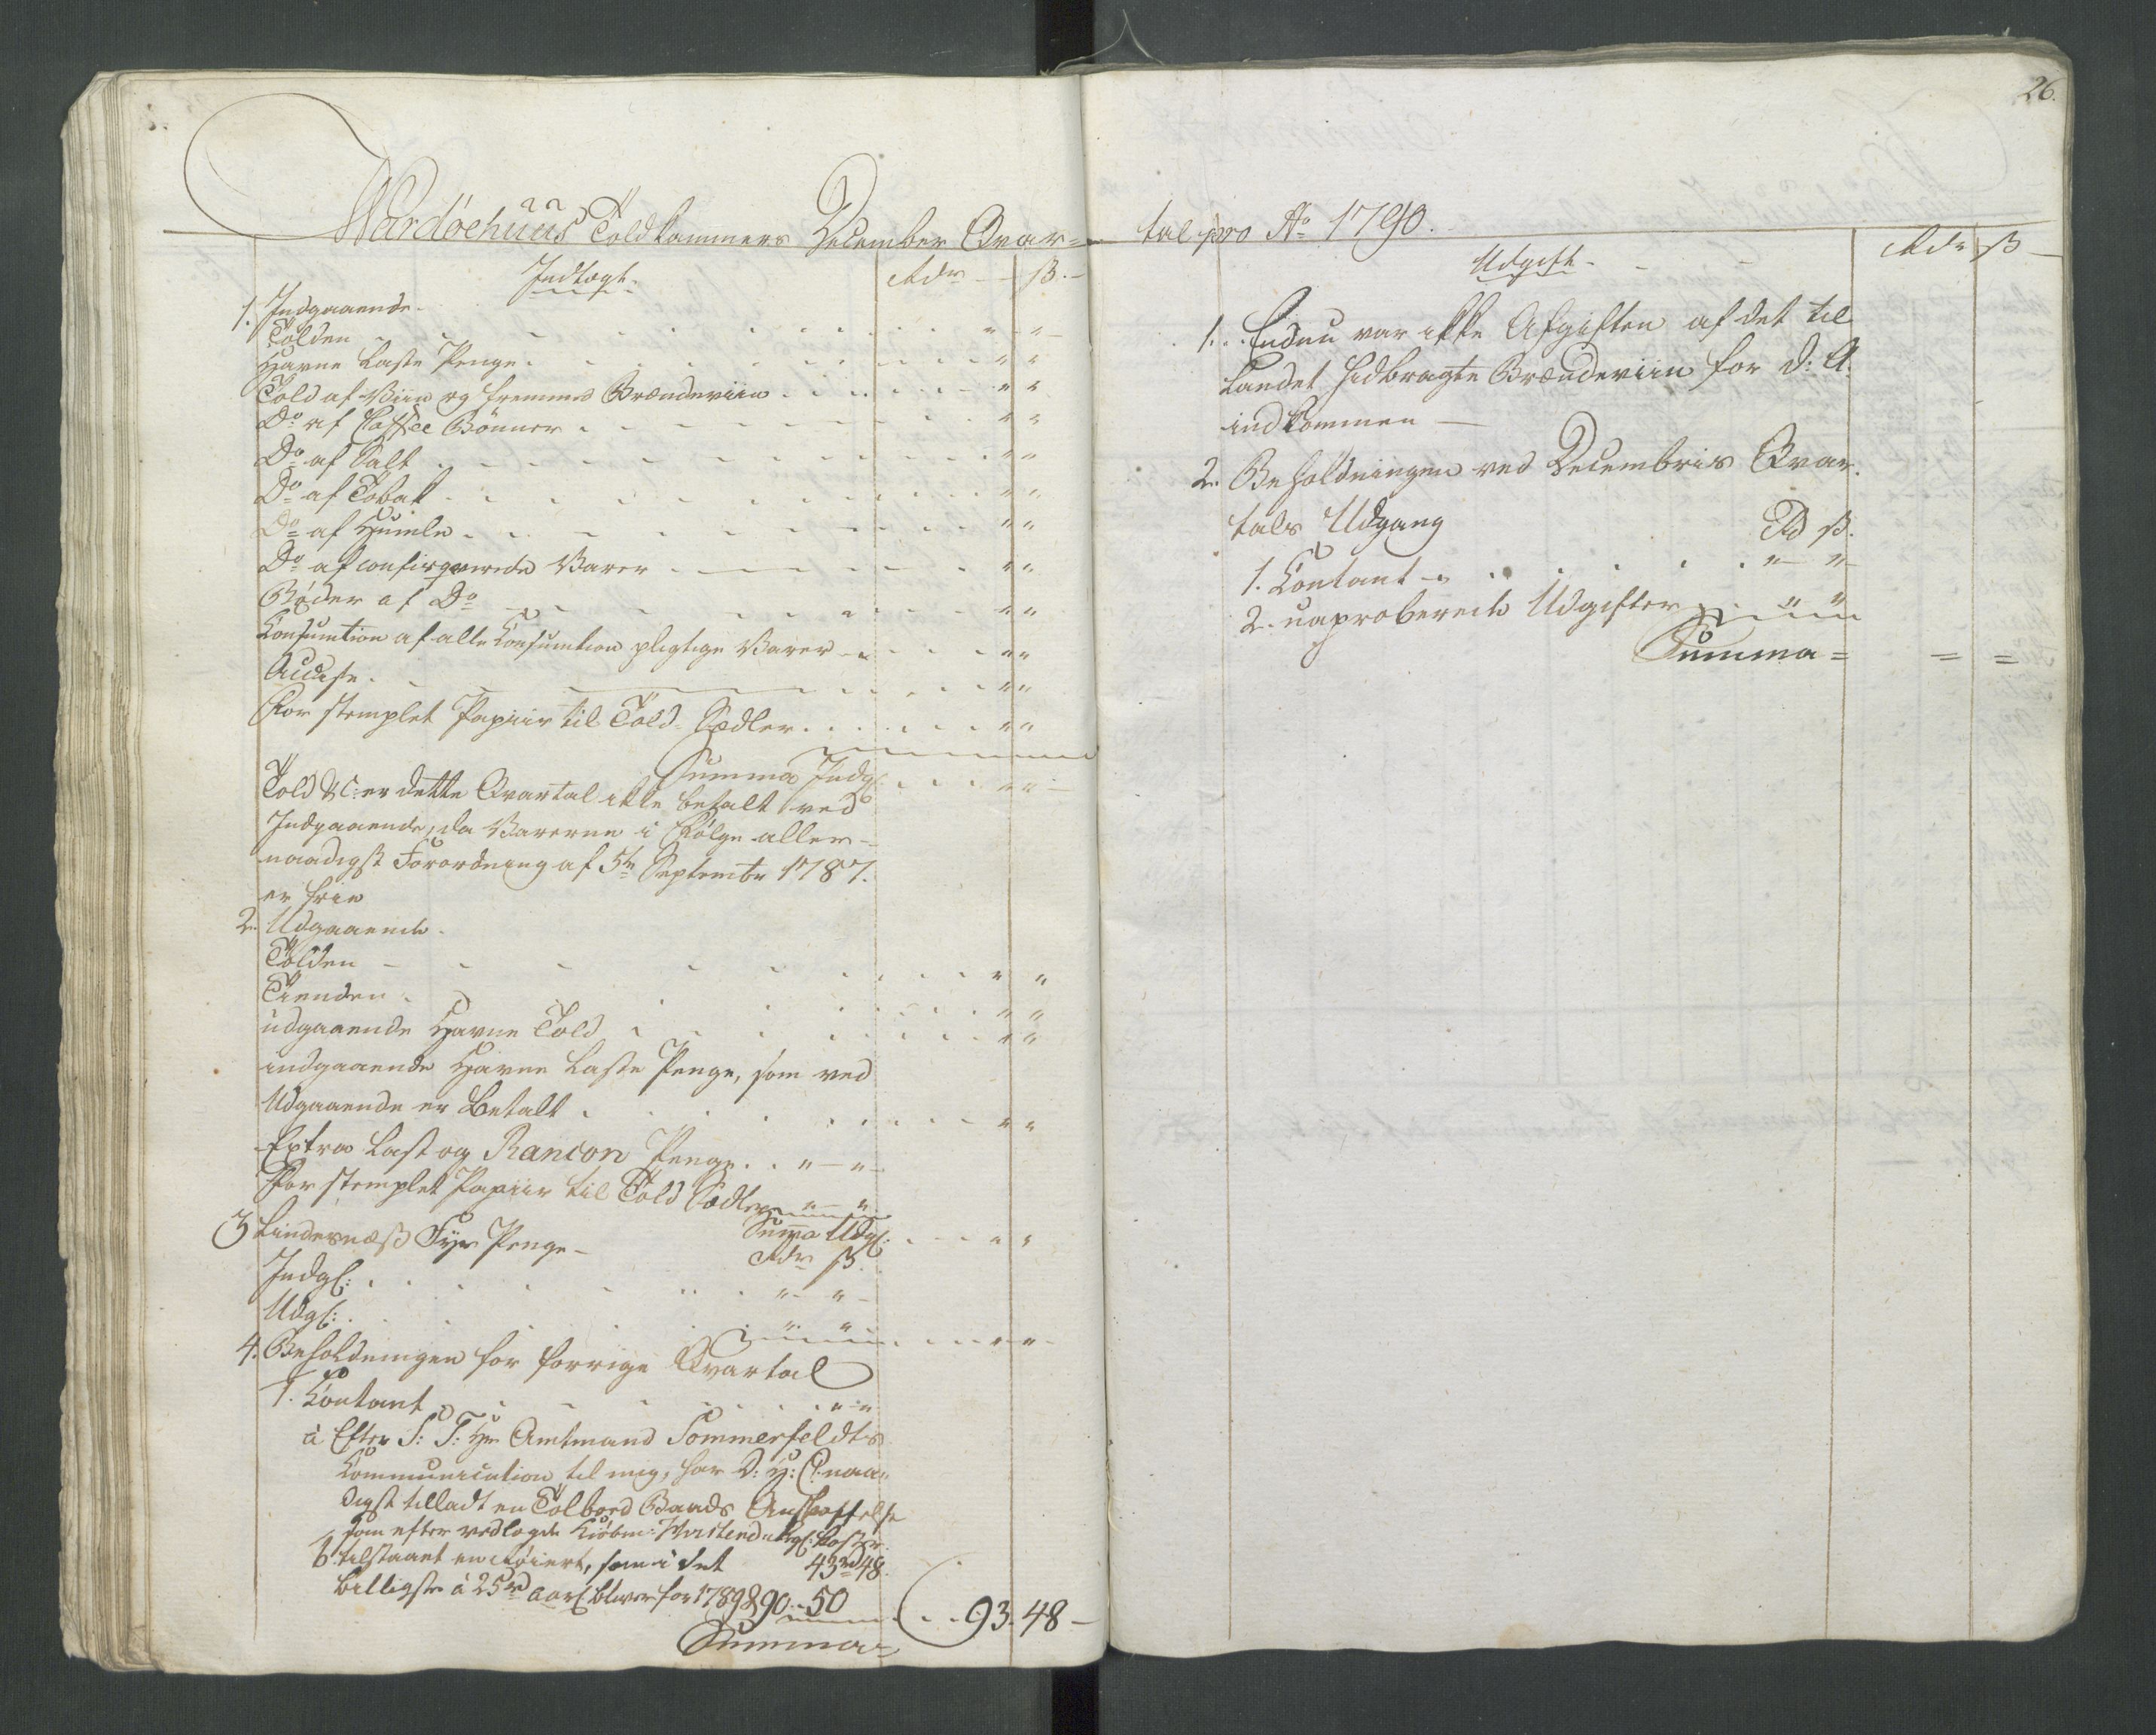 26.
Wardøehuus Toldkammers December Qvar=
Indtægt. Rdr ß.
1. Indgaaende.
Tolden " "
Havne Laste Penge " "
Told af Viin og fremmed Brændeviin " "
Do af Coffee Bønner " "
Do af Salt " "
Do af Tobak " "
Do af Humle " "
Do af confisqverede Varer " "
Bøder af Do " "
Consumtion af alle Consumtion pligtige Varer " "
Accise " "
For stemplet Papiir til Told Sedler " "
Summa Indg: " "
Told &c: er dette Qvartal ikke betalt ved
Indgaaende, da Varerne i Følge aller-
naadigst Forordning af 5te Septembr 1787.
er frie
2. Udgaaende.
Tolden " "
Tienden " "
udgaaende Havne Told " "
indgaaende Havne Laste Penge, som ved
Udgaaende er betalt " "
Extra Last og Rancon Penge " "
For stemplet Papiir til Told Sedler " "
Summa Udg: " "
3 Lindesnæss Fyr Penge - Rdr ß.
Indg: " "
Udg: " " " "
4. Beholdningen for forrige Qvartal
1. Contant " "
a Efter S: T: Hr Amtmand Sommerfeldts
Communication til mig, har D: H: C: naa-
digst tilladt en Tolboed Baads Anskaffelse
som efter vedlagde Kiøbm: koster
43rd 48.
b tilstaaet en , som i det
billigste á 25rd aarl: bliver for 1789 & 90 .. 50 93. 48 -
Summa=
tal pro Ao 1790.
Udgift. Rdr ß
1. Endnu var ikke Afgiften af det til
Landet hidbragte Brændeviin for d: A:
indkommen
2. Beholdningen ved Decembris Qvar-
tals Udgang Rd ß.
1. Contant " "
2. uaproberede Udgifter " "
Summa = = =